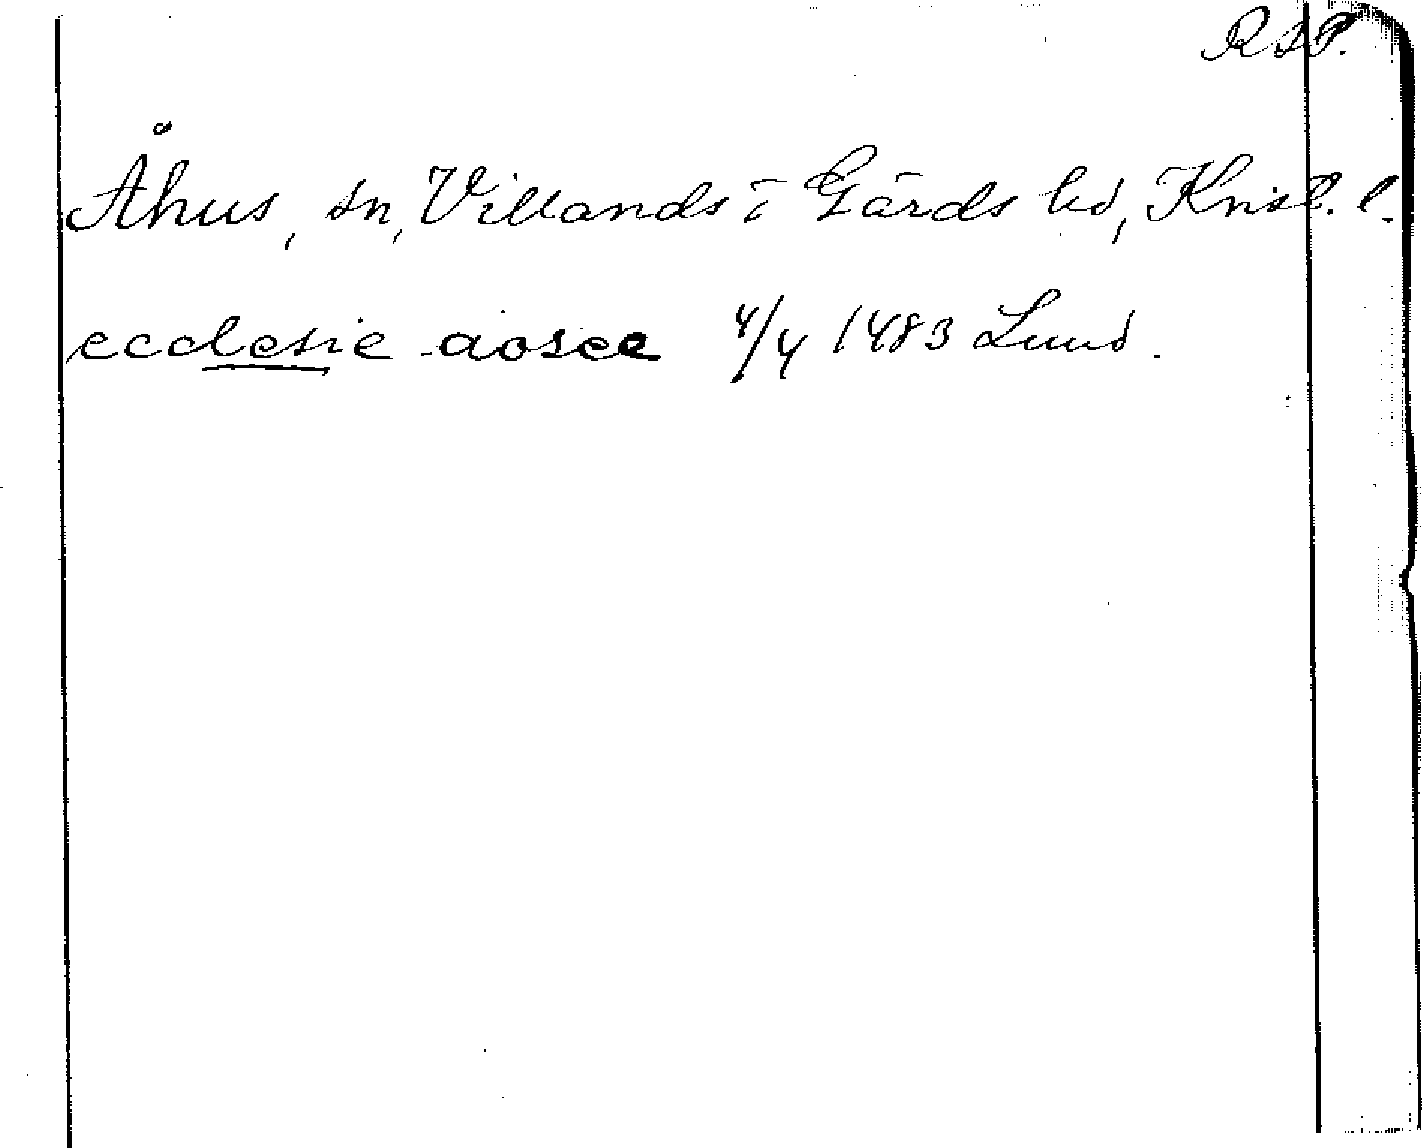 RAP.
Åhus, sn, Villands o Gärds hd, Krist. l.
ecclesie aosee 4/4 1483 Lund.